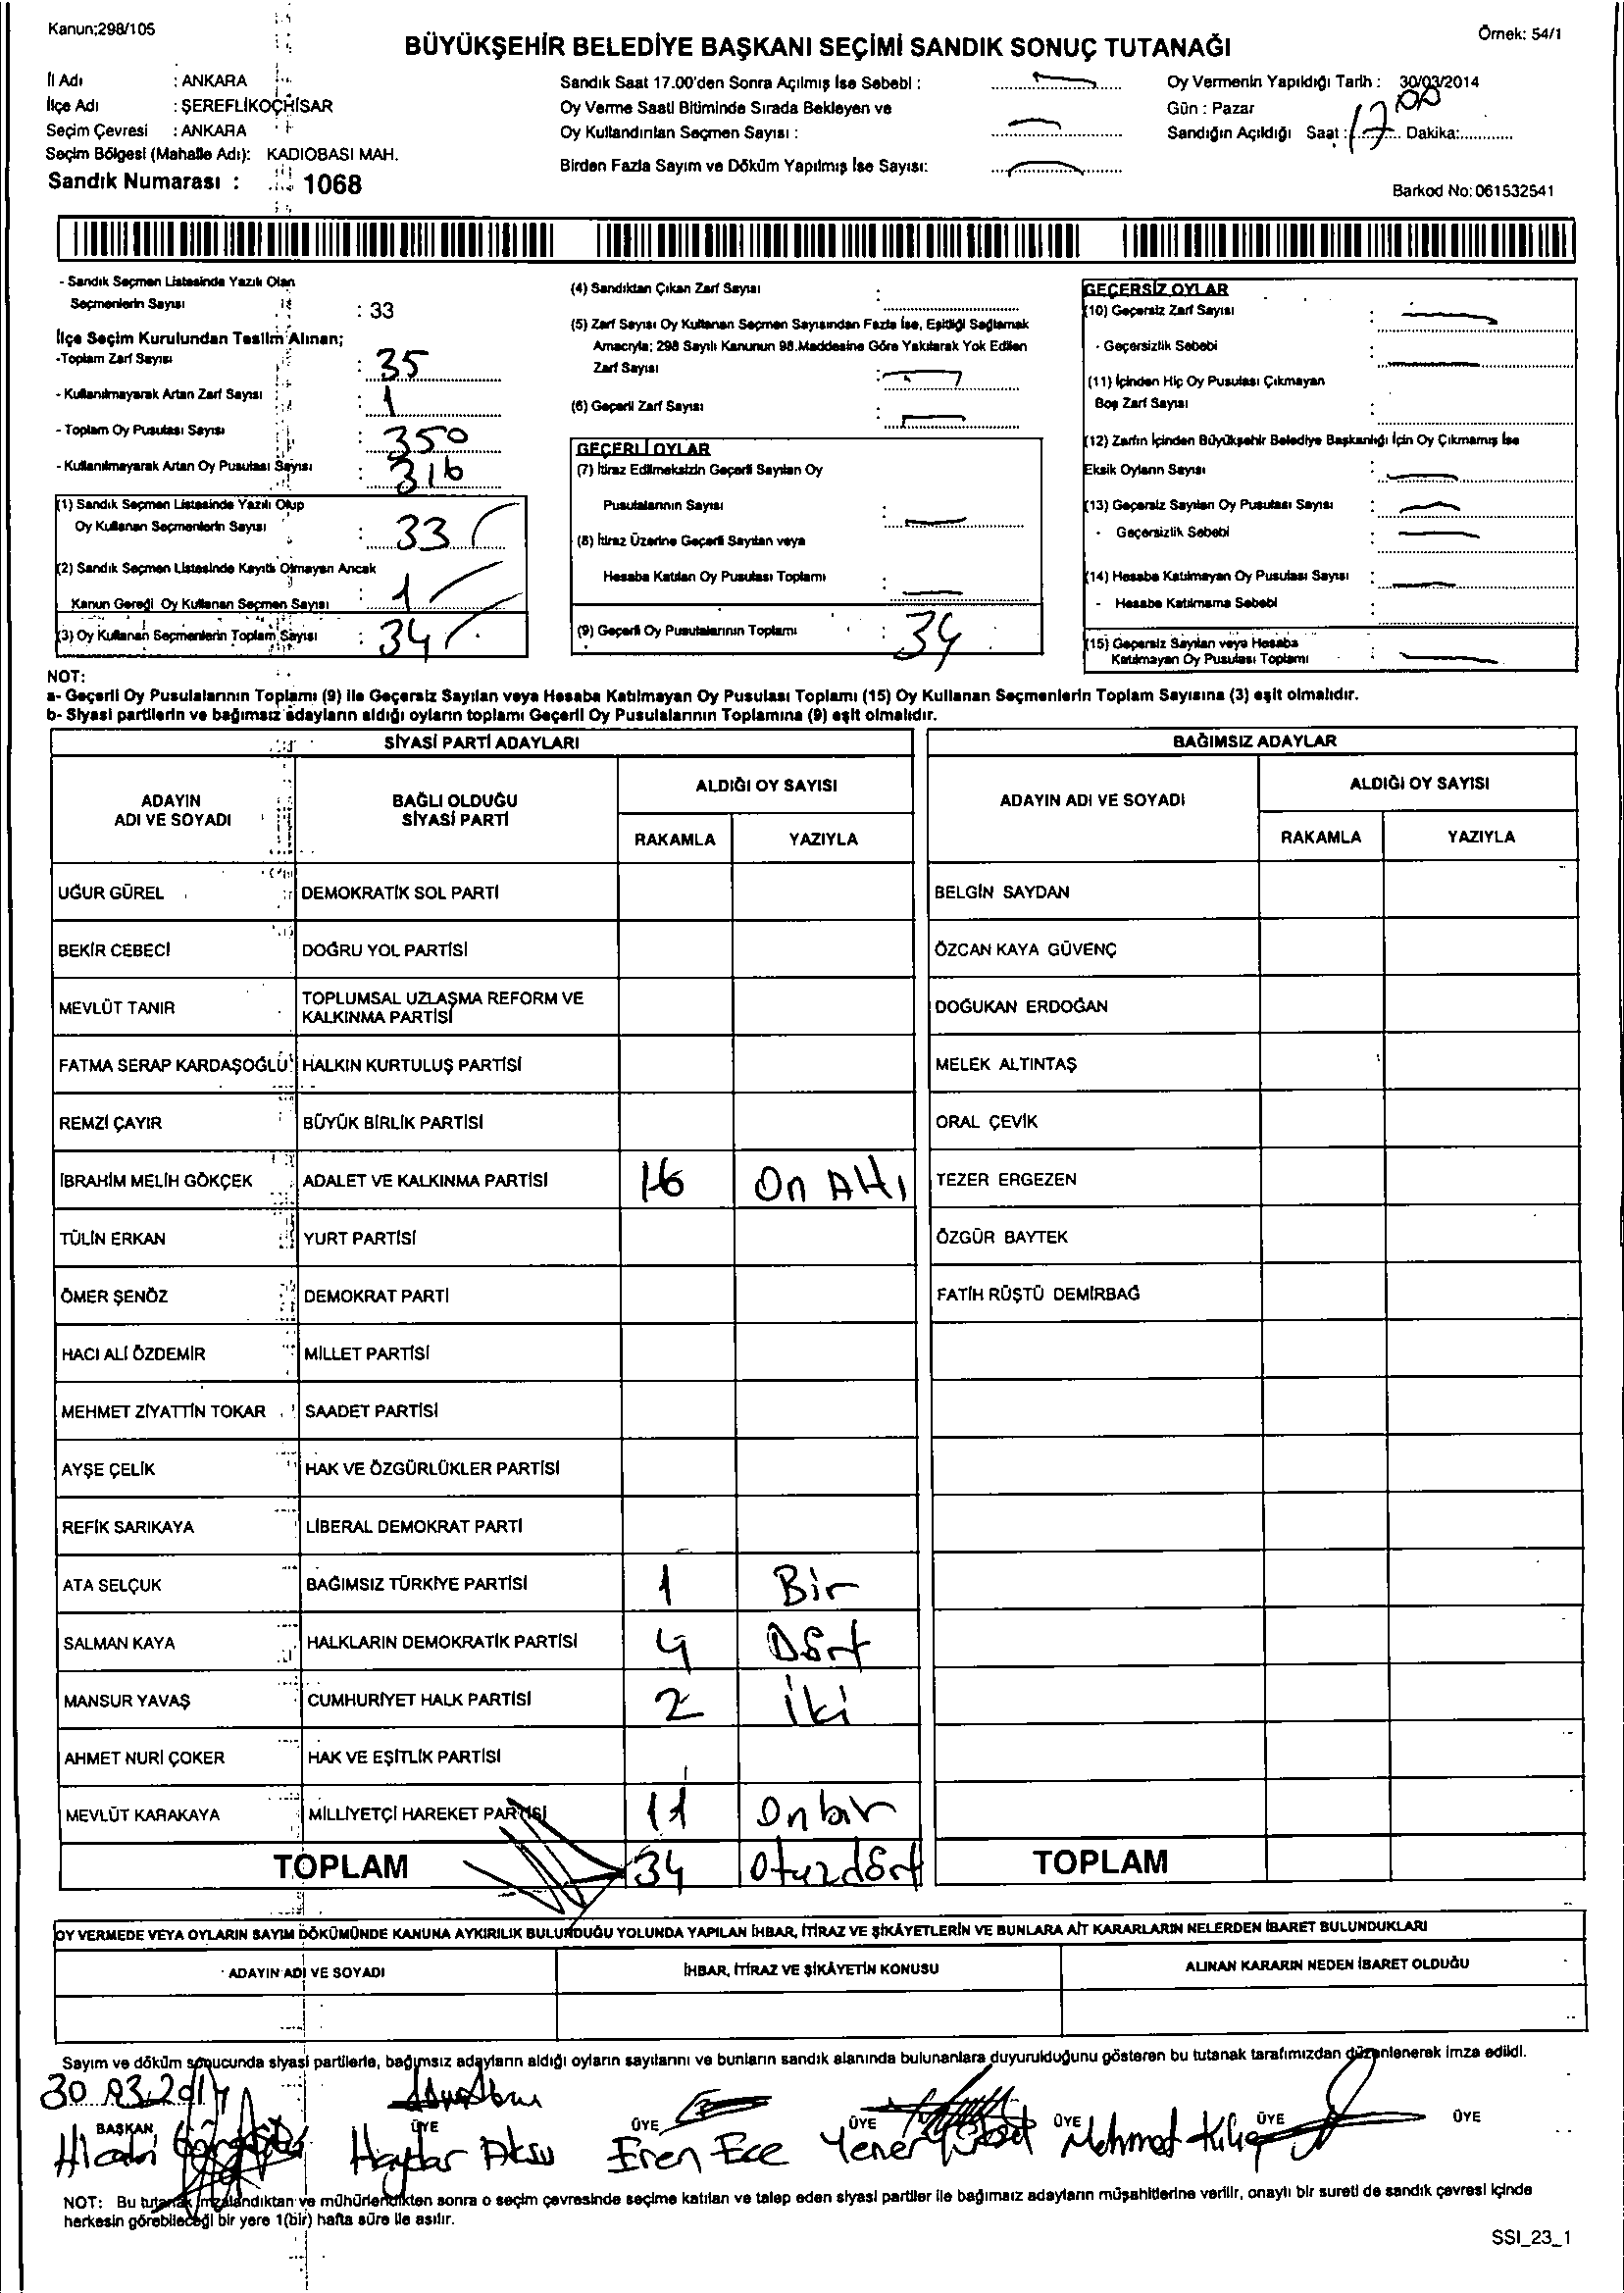 Kanun;298/105
Örnek: 54/1
BÜYÜKŞEHİR BELEDİYE BAŞKANI SEÇİMİ SANDIK SONUÇ TUTANAĞI
İl Adı : ANKARA
İlçe Adı : ŞEREFLİKOÇHİSAR
Seçim Çevresi : ANKARA
Seçim Bölgesi (Mahalle Adı): KADIOBASI MAH.
Sandık Numarası : 1068
Sandık Saat 17.00'den Sonra Açılmış İse Sebebi :
Oy Verme Saati Bitiminde Sırada Bekleyen ve
Oy Kullandırılan Seçmen Sayısı :
Birden Fazla Sayım ve Döküm Yapılmış İse Sayısı:
Oy Vermenin Yapıldığı Tarih : 30/03/2014
Gün : Pazar
Sandığın Açıldığı Saat : 17 00 Dakika:............
Barkod No: 061532541
- Sandık Seçmen Listesinde Yazılı Olan
Seçmenlerin Sayısı : 33
İlçe Seçim Kurulundan Teslim Alınan;
-Toplam Zarf Sayısı : 35
- Kullanılmayarak Artan Zarf Sayısı : 1
- Toplam Oy Pusulası Sayısı : 350
- Kullanılmayarak Artan Oy Pusulası Sayısı : 316
(1) Sandık Seçmen Listesinde Yazılı Olup
Oy Kullanan Seçmenlerin Sayısı : 33
(2) Sandık Seçmen Listesinde Kayıtlı Olmayan Ancak
Kanun Gereği Oy Kullanan Seçmen Sayısı : 1
(3) Oy Kullanan Seçmenlerin Toplam Sayısı : 34
(4) Sandıktan Çıkan Zarf Sayısı :
(5) Zarf Sayısı Oy Kullanan Seçmen Sayısından Fazla İse, Eşitliği Sağlamak
Amacıyla; 298 Sayılı Kanunun 98.Maddesine Göre Yakılarak Yok Edilen
Zarf Sayısı :
(6) Geçerli Zarf Sayısı :
GEÇERLİ OYLAR
(7) İtiraz Edilmeksizin Geçerli Sayılan Oy
Pusulalarının Sayısı :
(8) İtiraz Üzerine Geçerli Sayılan veya
Hesaba Katılan Oy Pusulası Toplamı :
(9) Geçerli Oy Pusulalarının Toplamı : 34
GEÇERSİZ OYLAR
(10) Geçersiz Zarf Sayısı :
- Geçersizlik Sebebi :
(11) İçinden Hiç Oy Pusulası Çıkmayan
Boş Zarf Sayısı :
(12) Zarfın İçinden Büyükşehir Belediye Başkanlığı İçin Oy Çıkmamış İse
Eksik Oyların Sayısı :
(13) Geçersiz Sayılan Oy Pusulası Sayısı :
- Geçersizlik Sebebi :
(14) Hesaba Katılmayan Oy Pusulası Sayısı :
- Hesaba Katılmama Sebebi :
(15) Geçersiz Sayılan veya Hesaba
Katılmayan Oy Pusulası Toplamı :
NOT:
a- Geçerli Oy Pusulalarının Toplamı (9) ile Geçersiz Sayılan veya Hesaba Katılmayan Oy Pusulası Toplamı (15) Oy Kullanan Seçmenlerin Toplam Sayısına (3) eşit olmalıdır.
b- Siyasi partilerin ve bağımsız adayların aldığı oyların toplamı Geçerli Oy Pusulalarının Toplamına (9) eşit olmalıdır.
SİYASİ PARTİ ADAYLARI
BAĞIMSIZ ADAYLAR
ADAYIN ADI VE SOYADI
BAĞLI OLDUĞU SİYASİ PARTİ
ALDIĞI OY SAYISI
RAKAMLA YAZIYLA
ADAYIN ADI VE SOYADI
ALDIĞI OY SAYISI
RAKAMLA YAZIYLA
UĞUR GÜREL DEMOKRATİK SOL PARTİ BELGİN SAYDAN
BEKİR CEBECİ DOĞRU YOL PARTİSİ ÖZCAN KAYA GÜVENÇ
MEVLÜT TANIR TOPLUMSAL UZLAŞMA REFORM VE KALKINMA PARTİSİ DOĞUKAN ERDOĞAN
FATMA SERAP KARDAŞOĞLU HALKIN KURTULUŞ PARTİSİ MELEK ALTINTAŞ
REMZİ ÇAYIR BÜYÜK BİRLİK PARTİSİ ORAL ÇEVİK
İBRAHİM MELİH GÖKÇEK ADALET VE KALKINMA PARTİSİ 16 On Altı TEZER ERGEZEN
TÜLİN ERKAN YURT PARTİSİ ÖZGÜR BAYTEK
ÖMER ŞENÖZ DEMOKRAT PARTİ FATİH RÜŞTÜ DEMİRBAĞ
HACI ALİ ÖZDEMİR MİLLET PARTİSİ
MEHMET ZİYATTİN TOKAR SAADET PARTİSİ
AYŞE ÇELİK HAK VE ÖZGÜRLÜKLER PARTİSİ
REFİK SARIKAYA LİBERAL DEMOKRAT PARTİ
ATA SELÇUK BAĞIMSIZ TÜRKİYE PARTİSİ 1 Bir
SALMAN KAYA HALKLARIN DEMOKRATİK PARTİSİ 4 Dört
MANSUR YAVAŞ CUMHURİYET HALK PARTİSİ 2 İki
AHMET NURİ ÇOKER HAK VE EŞİTLİK PARTİSİ
MEVLÜT KARAKAYA MİLLİYETÇİ HAREKET PARTİSİ 11 Onbir
TOPLAM 34 Otuzdört TOPLAM
OY VERMEDE VEYA OYLARIN SAYIM DÖKÜMÜNDE KANUNA AYKIRILIK BULUNDUĞU YOLUNDA YAPILAN İHBAR, İTİRAZ VE ŞİKÂYETLERİN VE BUNLARA AİT KARARLARIN NELERDEN İBARET BULUNDUKLARI
ADAYIN ADI VE SOYADI İHBAR, İTİRAZ VE ŞİKÂYETİN KONUSU ALINAN KARARIN NEDEN İBARET OLDUĞU
Sayım ve döküm sonucunda siyasi partilerle, bağımsız adayların aldığı oyların sayılarını ve bunların sandık alanında bulunanlara duyurulduğunu gösteren bu tutanak tarafımızdan düzenlenerek imza edildi.
30.03.2014
BAŞKAN ÜYE ÜYE ÜYE ÜYE ÜYE ÜYE
Haydar Aksu Eren Ece Yener Mehmet Kılıç
NOT: Bu tutanak imzalandıktan ve mühürlendikten sonra o seçim çevresinde seçime katılan ve talep eden siyasi partiler ile bağımsız adayların müşahitlerine verilir, onaylı bir sureti de sandık çevresi içinde
herkesin görebileceği bir yere 1(bir) hafta süre ile asılır.
SSI_23_1